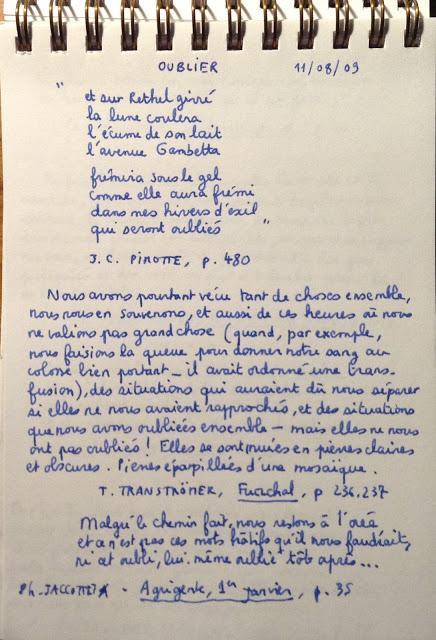 OUBLIER 11/08/09
" et sur Rethel givré
la lune coulera
l'écume de son lait
l'avenue Gambetta
frémira sous le gel
comme elle aura frémi
dans mes hivers d'exil
qui seront oubliés "
J.C. PIROTTE, p. 480
Nous avons pourtant vécu tant de choses ensemble,
nous nous en souvenons, et aussi de ces heures où nous
ne valions pas grand chose (quand, par exemple,
nous faisions la queue pour donner notre sang au
colosse bien portant _ il avait ordonné une trans-
fusion), des situations qui auraient dû nous séparer
si elles ne nous avaient rapprochés, et des situations
que nous avons oubliées ensemble – mais elles ne nous
ont pas oubliés ! Elles se sont muées en pierres claires
et obscures. Pierres éparpillées d'une mosaïque.
T. TRANSTRÖMER, Funchal, p 236.237
Malgré le chemin fait, nous restons à l'orée
et ce n'est pas ces mots hâtifs qu'il nous faudrait,
ni cet oubli, lui-même oublié tôt après...
Ph. JACCOTTET - Agrigente, 1er janvier, p. 35